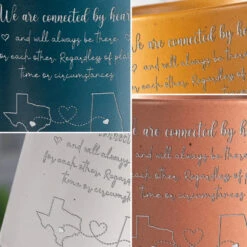 We are connected by hear
and will always be there
for each other. Regardless of pla
time or circumstances
We are connected by hear
and will always be
for each other. Regardle
time or circumstances
connected
and will always
for each other. Regard
time or circumstan
are connected by hear
and will always be there
each other. Regardless of pla
time or circumstances